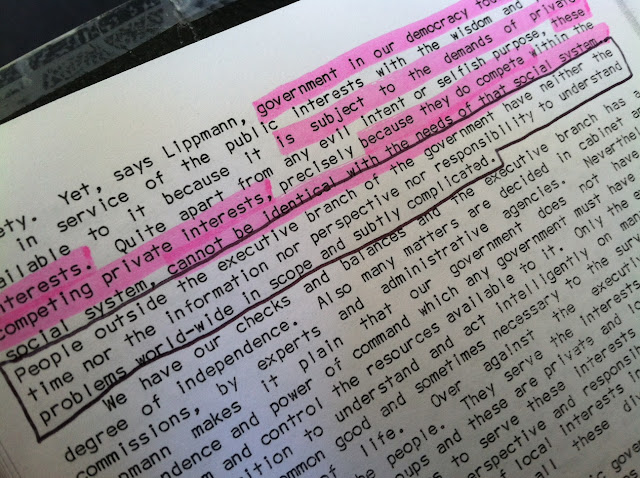 ety. Yet, says Lippmann, government in our democracy tod
in service of the public interests with the wisdom and
ilable to it because it is subject to the demands of private
nterests. Quite apart from any evil intent or selfish purpose, these
competing private interests, precisely because they do compete within the
social system, cannot be identical with the needs of that social system.
People outside the executive branch of the government have neither the
time nor the information nor perspective nor responsibility to understand
problems world-wide in scope and subtly complicated.
We have our checks and balances and the executive branch has a
degree of independence. Also many matters are decided in cabinet
commissions, by experts and administrative agencies. Neverthe
pmann makes it plain that our government does not have
ndence and power of command which any government must have
m and control the resources available to it. Only the
ition to understand and act intelligently on ma
ommon good and sometimes necessary to the sur
of life. Over against the executi
he people. They serve the interests
oups and these are private and l
s to serve these interests
erspective and responsi
of local interests in
all these di